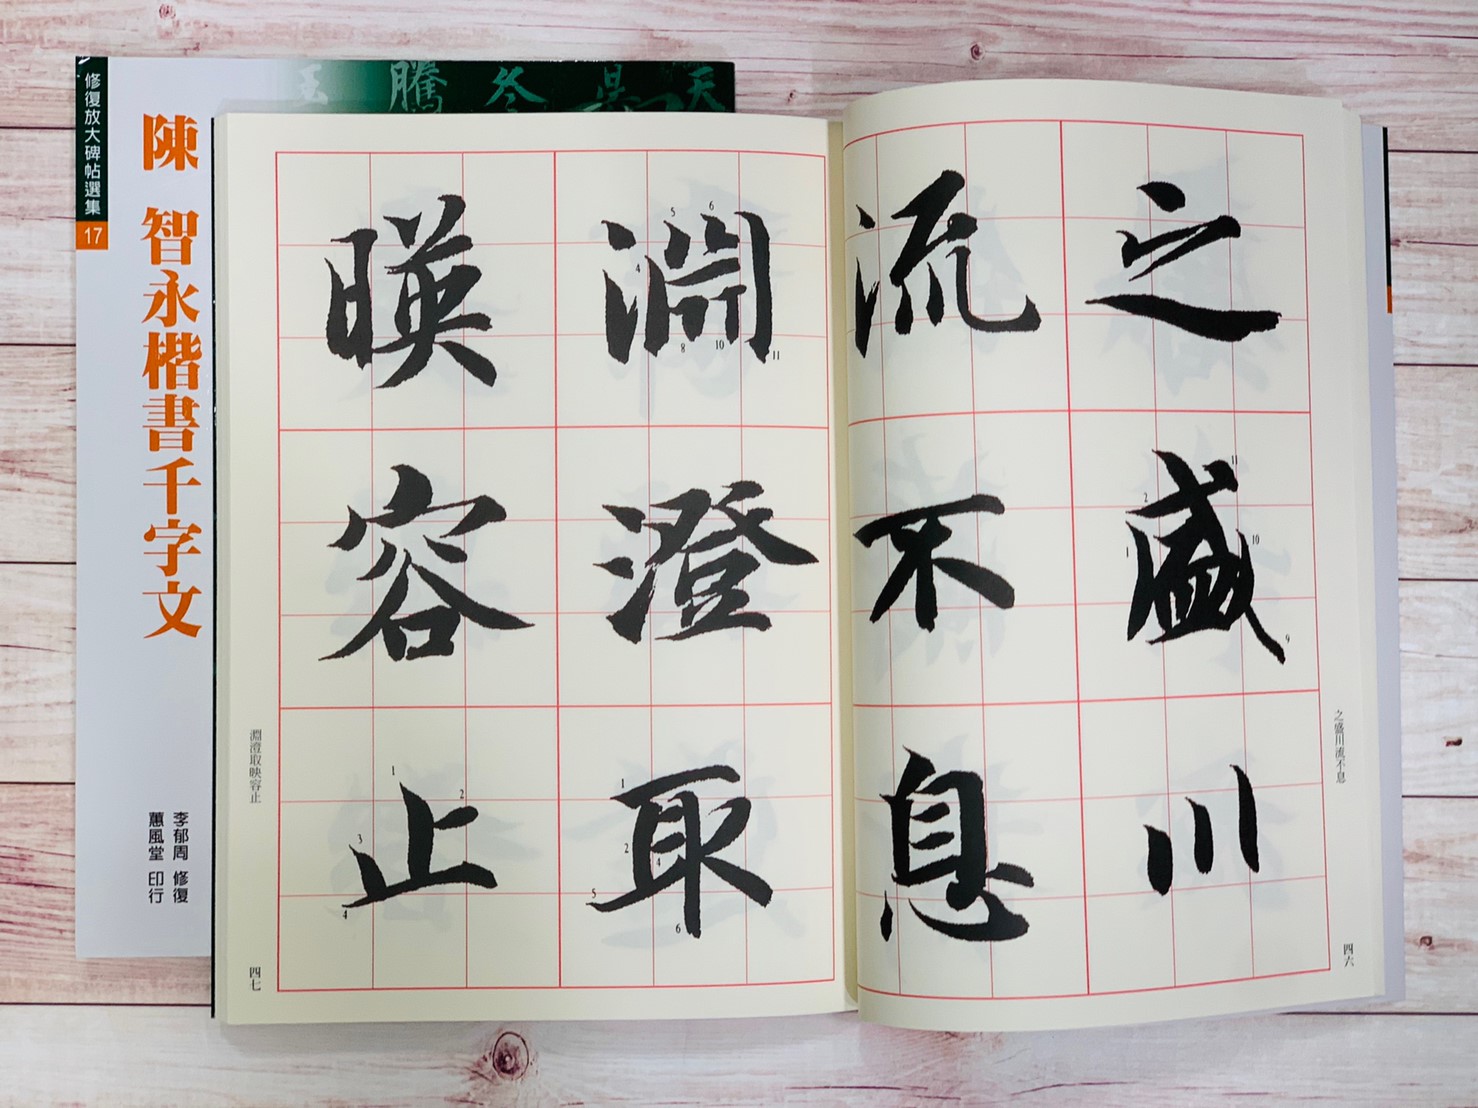 修復放大碑帖選集
17
陳 智永楷書千字文
李郁周 修復
蕙風堂 印行
天
是
冬
騰
玉
之盛川
流不息
之盛川流不息
四六
淵澄取
暎容止
淵澄取映容止
四七